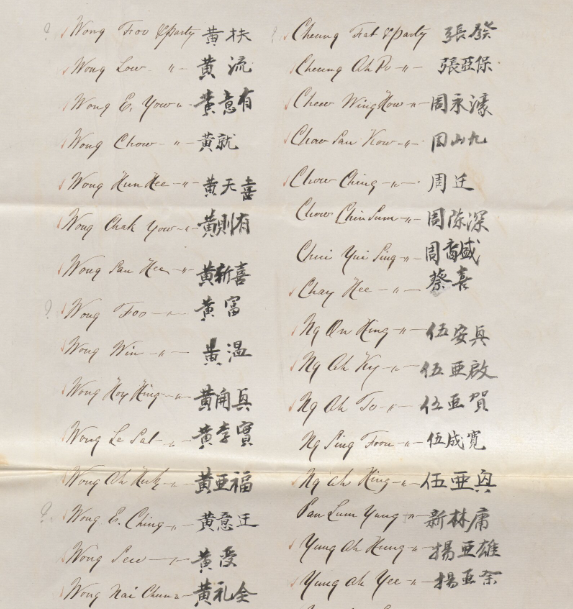 Wong Foo & Party 黃扶
Wong Low 〃 黃流
Wong E. Yow 〃 黃意有
Wong Chow 〃 黃就
Wong Hun Hee 〃 黃天喜
Wong Chak Yow 〃 黃則有
Wong San Hee 〃 黃新喜
Wong Foo 〃 黃富
Wong Win 〃 黃溫
Wong Hoy Hing 〃 黃開
Wong Le Sat 〃 黃李實
Wong Ah Fuk 〃 黃亞福
Wong E. Ching 〃 黃意
Wong Sew 〃 黃受
Wong Nai Chun 〃 黃礼全
Cheung Fat & Party 張發
Cheung Ah Po 〃 張亞保
Chow Wing How 〃 周永濠
Chow San Kow 〃 周山九
Chow Ching 〃 周
Chow Chin Sum 〃 周陈深
Chui Yui Sing 〃 周 盛
Chay Hee 〃 蔡喜
Ng On Hing 〃 伍安
Ng Ah Ky 〃 伍亞啟
Ng Ah To 〃 伍亞賀
Ng Sing Foon 〃 伍成寬
Ng Ah Hing 〃 伍亞
San Lum Yung 〃 新林庸
Yung Ah Hung 〃 楊亞雄
Yung Ah Yee 〃 楊亞